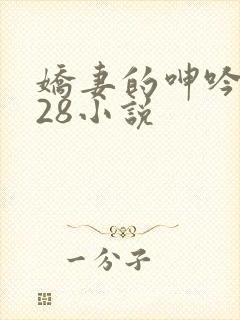 嬌妻的呻吟
28小説
一分子